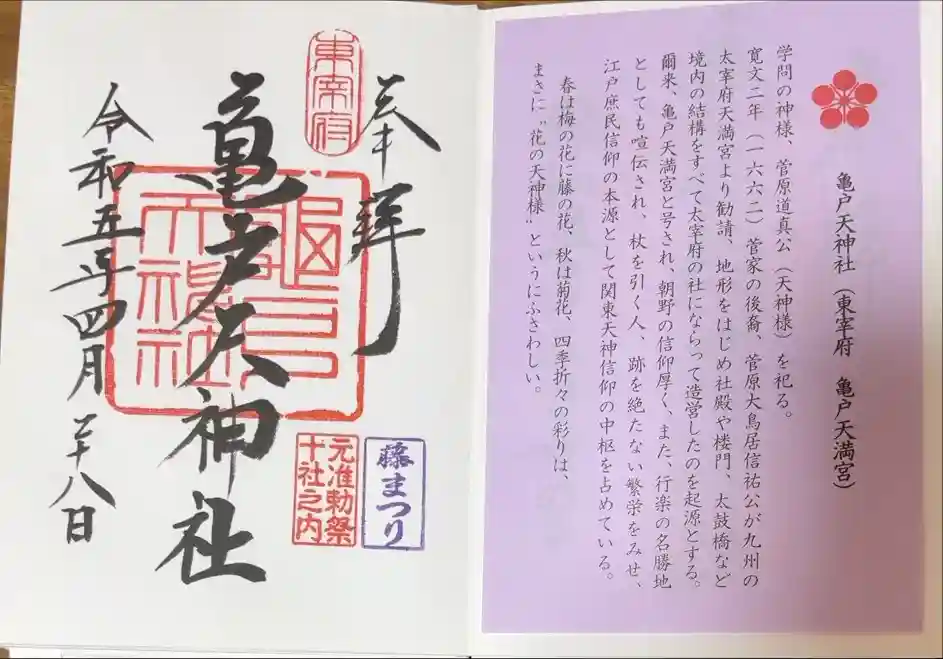 亀戸天神社（東宰府　亀戸天満宮）
学問の神様、菅原道真公（天神様）を祀る。
寛文二年（一六六二）菅家の後裔、菅原大鳥居信祐公が九州の
太宰府天満宮より勧請、地形をはじめ社殿や楼門、太鼓橋など
境内の結構をすべて太宰府の社にならって造営したのを起源とする。
爾来、亀戸天満宮と号され、朝野の信仰厚く、また、行楽の名勝地
としても喧伝され、杖を引く人、跡を絶たない繁栄をみせ、
江戸庶民信仰の本源として関東天神信仰の中枢を占めている。
春は梅の花に藤の花、秋は菊花、四季折々の彩りは、
まさに〝花の天神様〟というにふさわしい。
奉拝
東宰府
亀戸天神社
亀戸
天神社
藤まつり
元准勅祭
十社之内
令和五年四月二十八日